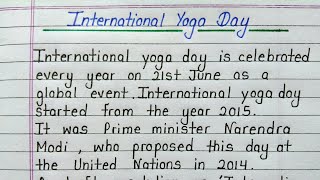 International Yoga Day
International yoga day is celebrated
every year on 21st June as a
global event. International yoga day
started from the year 2015.
It was Prime minister Narendra
Modi, who proposed this day at
the United Nations in 2014.